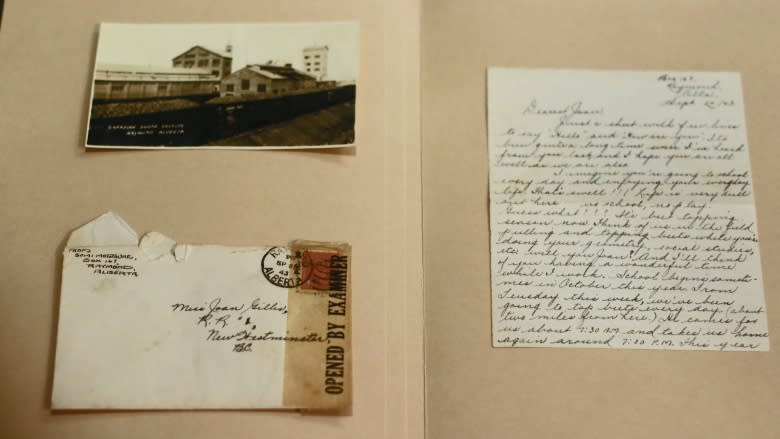 CANADIAN SUGAR FACTORY
RAYMOND ALBERTA
FROM
BOX 157,
RAYMOND,
ALBERTA
ALBERTA
43
Miss Joan Gillis,
R.R. #1
New Westminster
B.C.
OPENED BY EXAMINER
Box 157,
Raymond,
Alta.
Sept
Dearest Joan:
Just a short
lines
to say "Hello" and "How are you". It's
been quite a long time since I've heard
from you last and I hope you are all
well as we are also.
I imagine you're going to school
every day and enjoying your everyday
life. That's swell!!! Life is very dull
out here no school, no play.
Guess what!!! It's beet topping
season now. Think of us in the field
pulling and topping beets while you're
doing your geometry, social studies,
etc. will you Joan? And I'll think
of you having a wonderful time
while I work. School begins somet-
imes in October this year. From
Tuesday this week, we've been
going to top beets every day. (about
two miles from here.) He comes for
us about 7:30 A.M. and takes us home
again around 7:00 P.M. This year